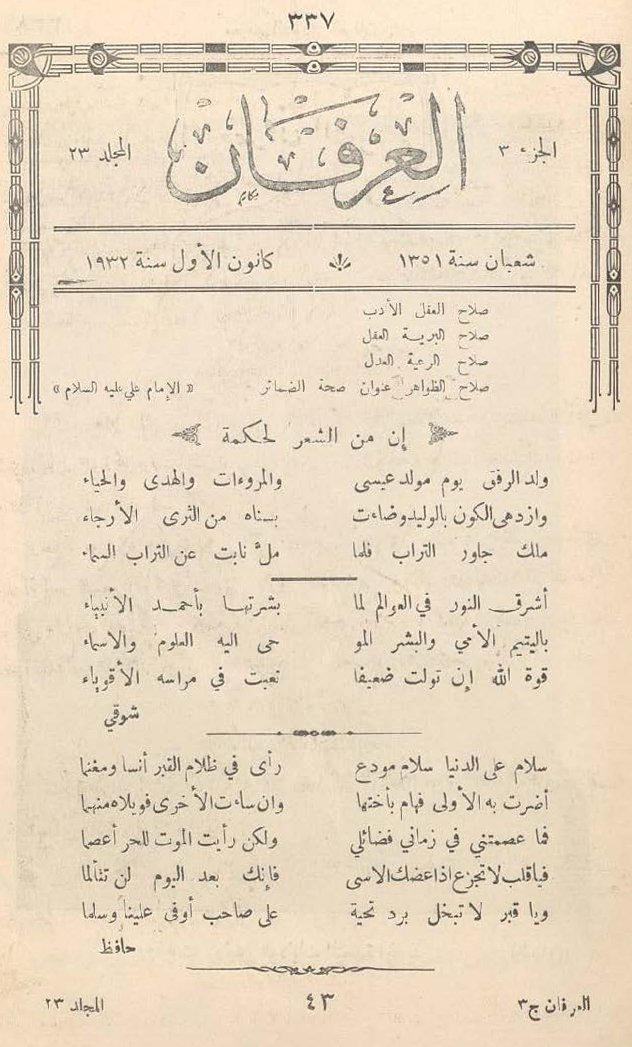 ٣٣٧
الجزء ٣ العرفان المجلد ٢٣
شعبان سنة ١٣٥١ كانون الأول سنة ١٩٣٢
صلاح العقل الأدب
صلاح البرية العقل
صلاح الرعية العدل
صلاح الظواهر عنوان صحة الضمائر « الإمام علي عليه السلام »
إن من الشعر لحكمة
ولد الرفق يوم مولد عيسى والمروءات والهدى والحياء
وازدهى الكون بالوليد وضاءت بسناه من الثرى الأرجاء
مالك جاور التراب فلما ملَّ نابت عن التراب السماء
أشرق النور في العوالم لما بشرتها بأحمد الأنبياء
باليتيم الأمي والبشر المو حى اليه العلوم والاسماء
قوة الله إن تولت ضعيفا تعبت في مراسه الأقوياء
شوقي
سلام على الدنيا سلام مودع رأى في ظلام القبر أنسا ومغنما
أضرت به الأولى فهام بأختها وان ساءت الأخرى فويلاه منهما
فما عصمتني في زماني فضائلي ولكن رأيت الموت للحر أعصما
فياقلب لا تجزع اذا عضك الاسى فإنك بعد اليوم لن تتألما
ويا قبر لا تبخل برد تحية على صاحب أوفى علينا وسلما
حافظ
العرفان ج٣ ٤٣ المجلد ٢٣